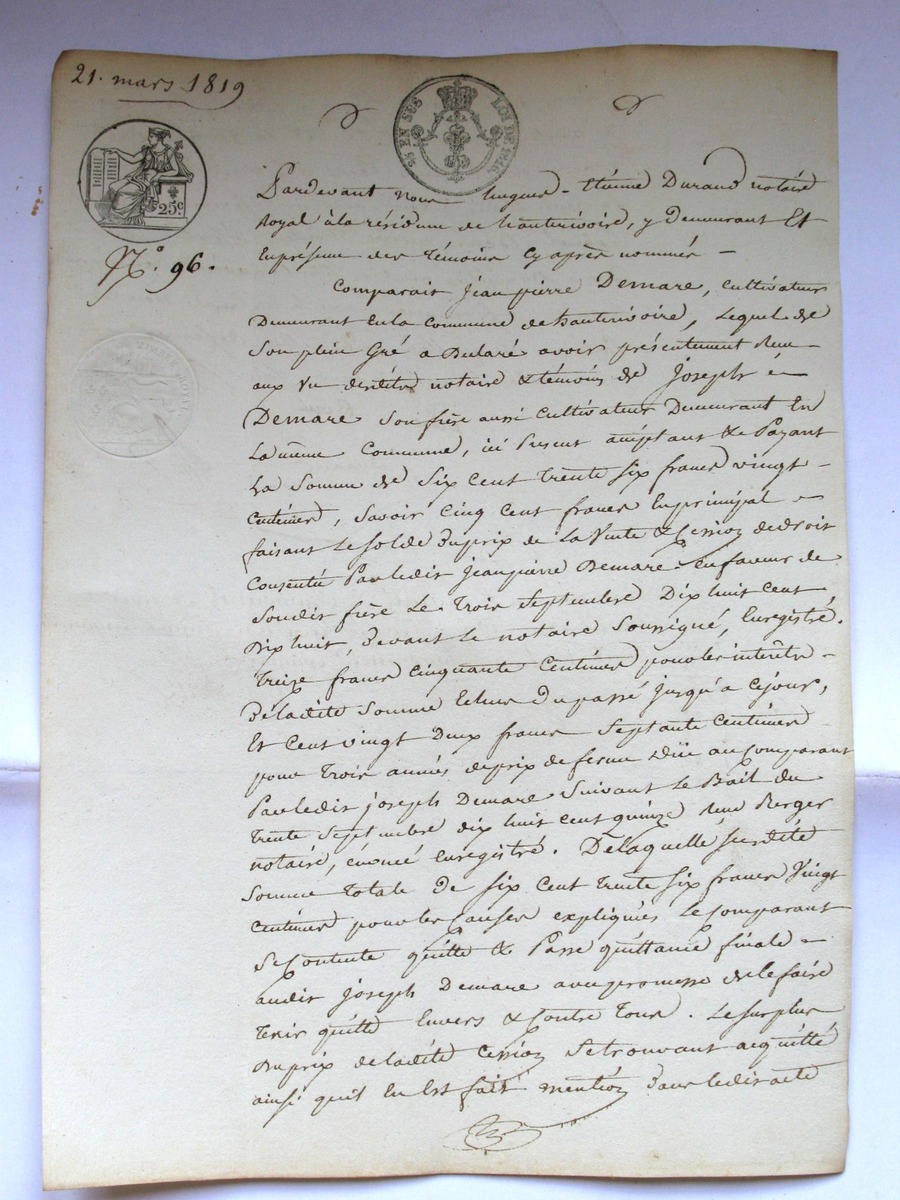 21. mars 1819
25 EN SUS LOI DE 1816.
25c
N.o 96.
TIMBRE ROYAL
Pardevant nous hugues-Etienne Durand notaire
Royal à la résidence de hauterivoire, y Demeurant Et
En présence des Témoins Cy après nommés -
Comparait Jean pierre Demare, Cultivateur
Demeurant En la Commune de hauterivoire, Lequel de
Son plein Gré a Déclaré avoir présentement Reçu
aux Vu desdits notaire & témoins de Joseph
Demare Son frère aussi Cultivateur Demeurant En
La même Commune, ici Présent acceptant & Payant
La Somme de Six Cent Trente Six francs vingt -
Centimes, Savoir Cinq Cent francs En principal -
faisant Le Solde Du prix de La Vente & Cession de droit
Consentie Par ledit Jean pierre Demare En faveur de
Son dit frère Le Trois Septembre Dix huit Cent
Dix huit, Devant Le notaire Soussigné, Enregistré.
Treize francs Cinquante Centimes pour les intérêts -
De la dite Somme Echus Du passé jusqu'à Ce jour,
Et Cent vingt Deux francs Septante Centimes
pour Trois années de prix de ferme Düe au Comparant
Par ledit joseph Demare Suivant Le Bail du
Trente Septembre dix huit Cent quinze Reçu Berger
notaire, énoncé Enregistré. De laquelle Susdite
Somme Totale De Six Cent Trente Six francs Vingt
Centimes pour les Causes expliquées Le Comparant
Se Contente quitte & Passe quittance finale -
audit Joseph Demare avec promesse de le faire
Tenir quitte Envers & Contre Tous. Le Surplus
Du prix de la dite Cession Se trouvant acquitté
ainsi qu'il En Est fait mention Dans le dit acte